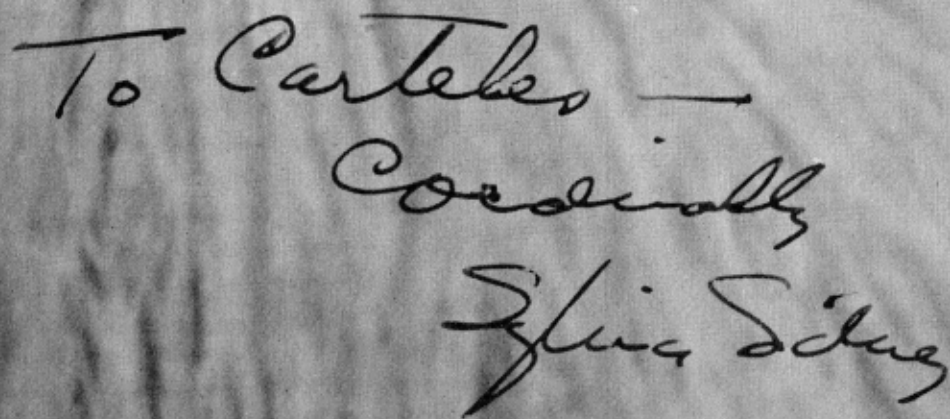 To Carteles —
Cordially
Sylvia Sidney